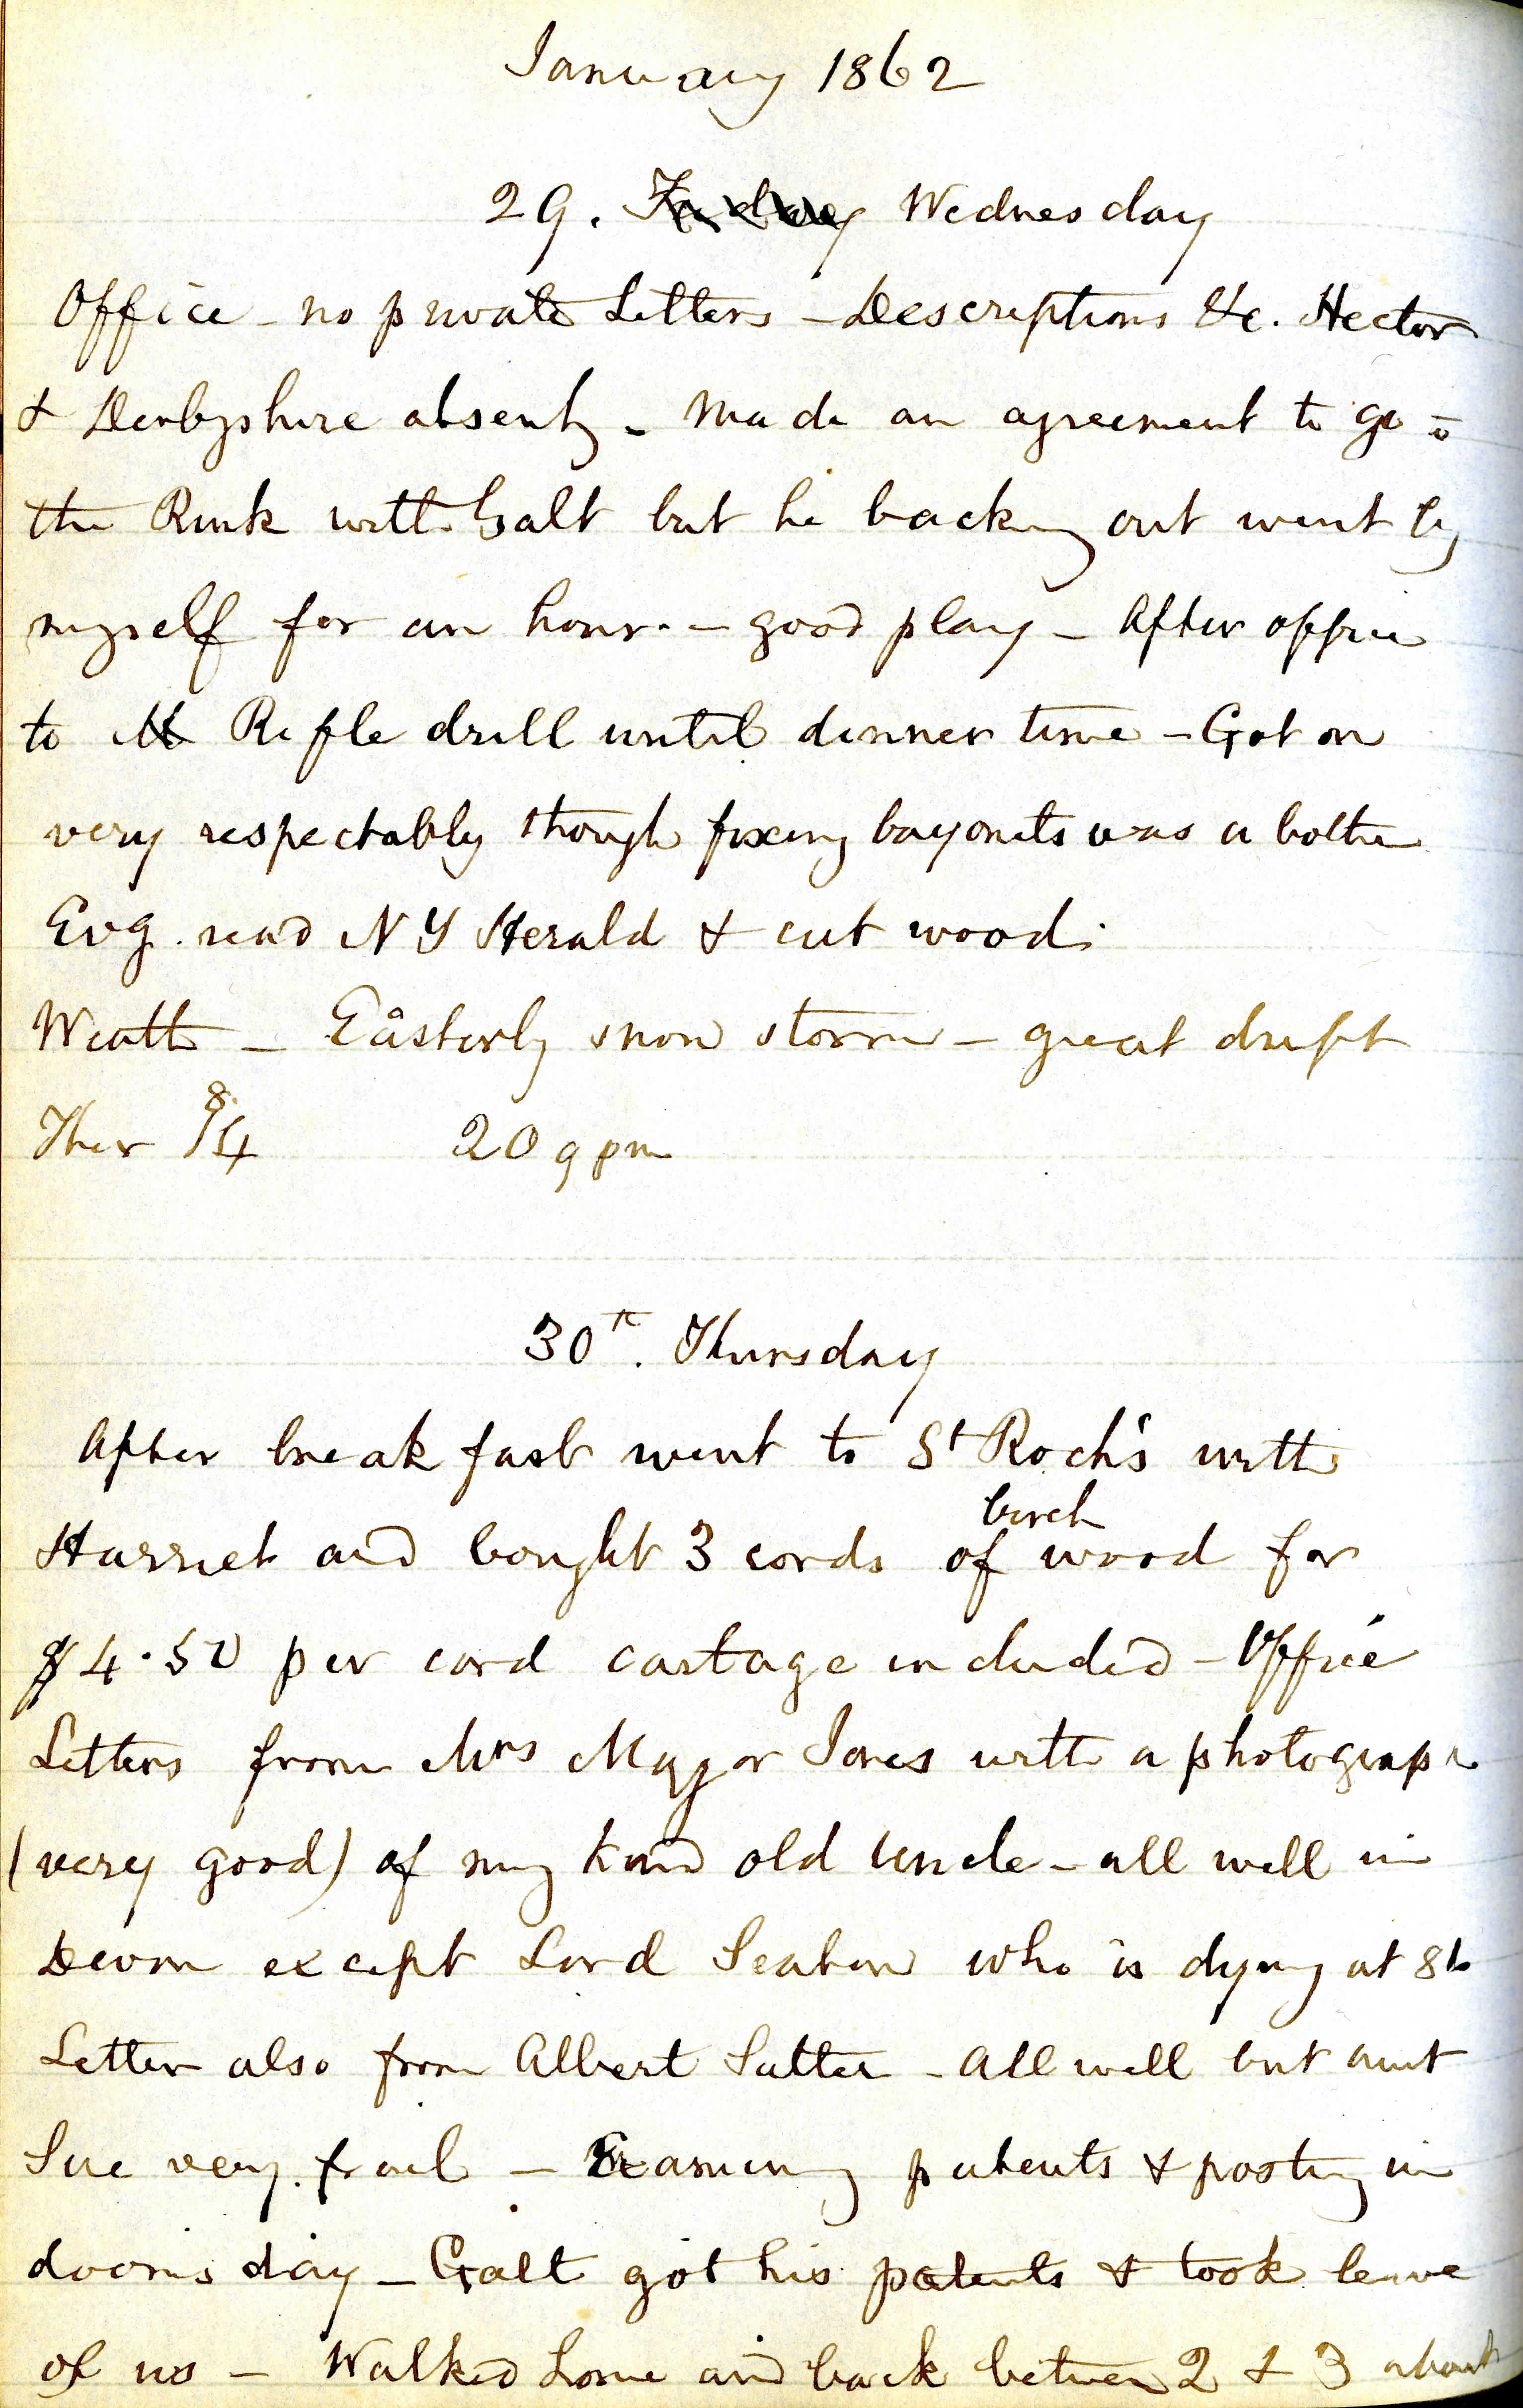 January 1862
29. Wednesday
Office - no private Letters - Descriptions &c. Hector
& Derbyshire absent - Made an agreement to go to
the Rink with Galt but he backing out went by
myself for an hour. - good play - After office
to Rifle drill until dinner time - Got on
very respectably though fixing bayonets was a bother
Evg. read N Y Herald & cut wood.
Weath - Easterly snow storm - great drift
Ther 8/14 20 9 pm
30th. Thursday
After breakfast went to St Roch's with
birch
Harriet and bought 3 cords of wood for
$4.50 per cord cartage included - Office
Letters from Mrs Major Jones with a photograph
(very good) of my kind old Uncle - all well in
Devon except Lord Seaton who is dying at 86
Letter also from Albert Sutter - All well but Aunt
Sue very frail - Examining patents & posting in
dooms day - Galt got his patents & took leave
of us - Walked home and back between 2 & 3 about